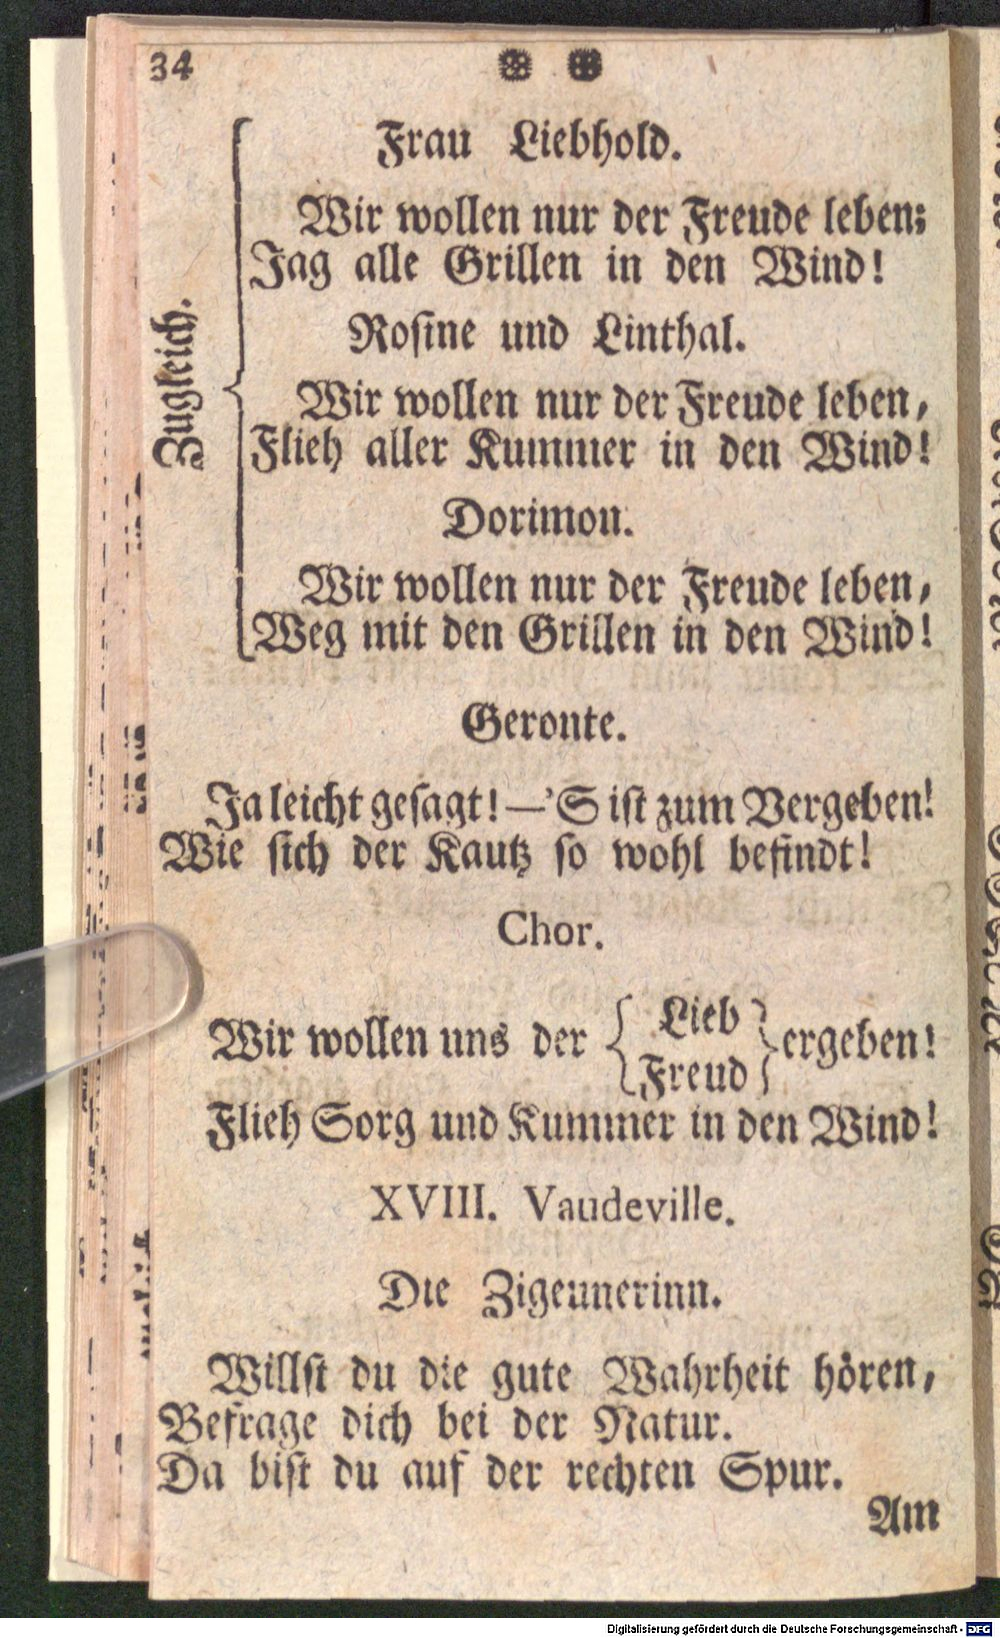 34
Zugleich.
Frau Liebhold.
Wir wollen nur der Freude leben;
Jag alle Grillen in den Wind!
Rosine und Linthal.
Wir wollen nur der Freude leben,
Flieh aller Kummer in den Wind!
Dorimon.
Wir wollen nur der Freude leben,
Weg mit den Grillen in den Wind!
Geronte.
Ja leicht gesagt! — 'S ist zum Vergeben!
Wie sich der Kautz so wohl befindt!
Chor.
Wir wollen uns der { Lieb
Freud } ergeben!
Flieh Sorg und Kummer in den Wind!
XVIII. Vaudeville.
Die Zigeunerinn.
Willst du die gute Wahrheit hören,
Befrage dich bei der Natur.
Da bist du auf der rechten Spur.
Am
Digitalisierung gefördert durch die Deutsche Forschungsgemeinschaft - DFG